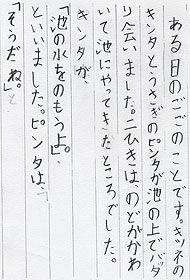 ある日のごごのことです。キツネの
キンタとうさぎのピンタが池の上でバッタ
り会いました。二ひきは、のどがかわ
いて池にやってきたところでした。
キンタが、
「池の水をのもうよ。」
といいました。ピンタは、
「そうだね。」と